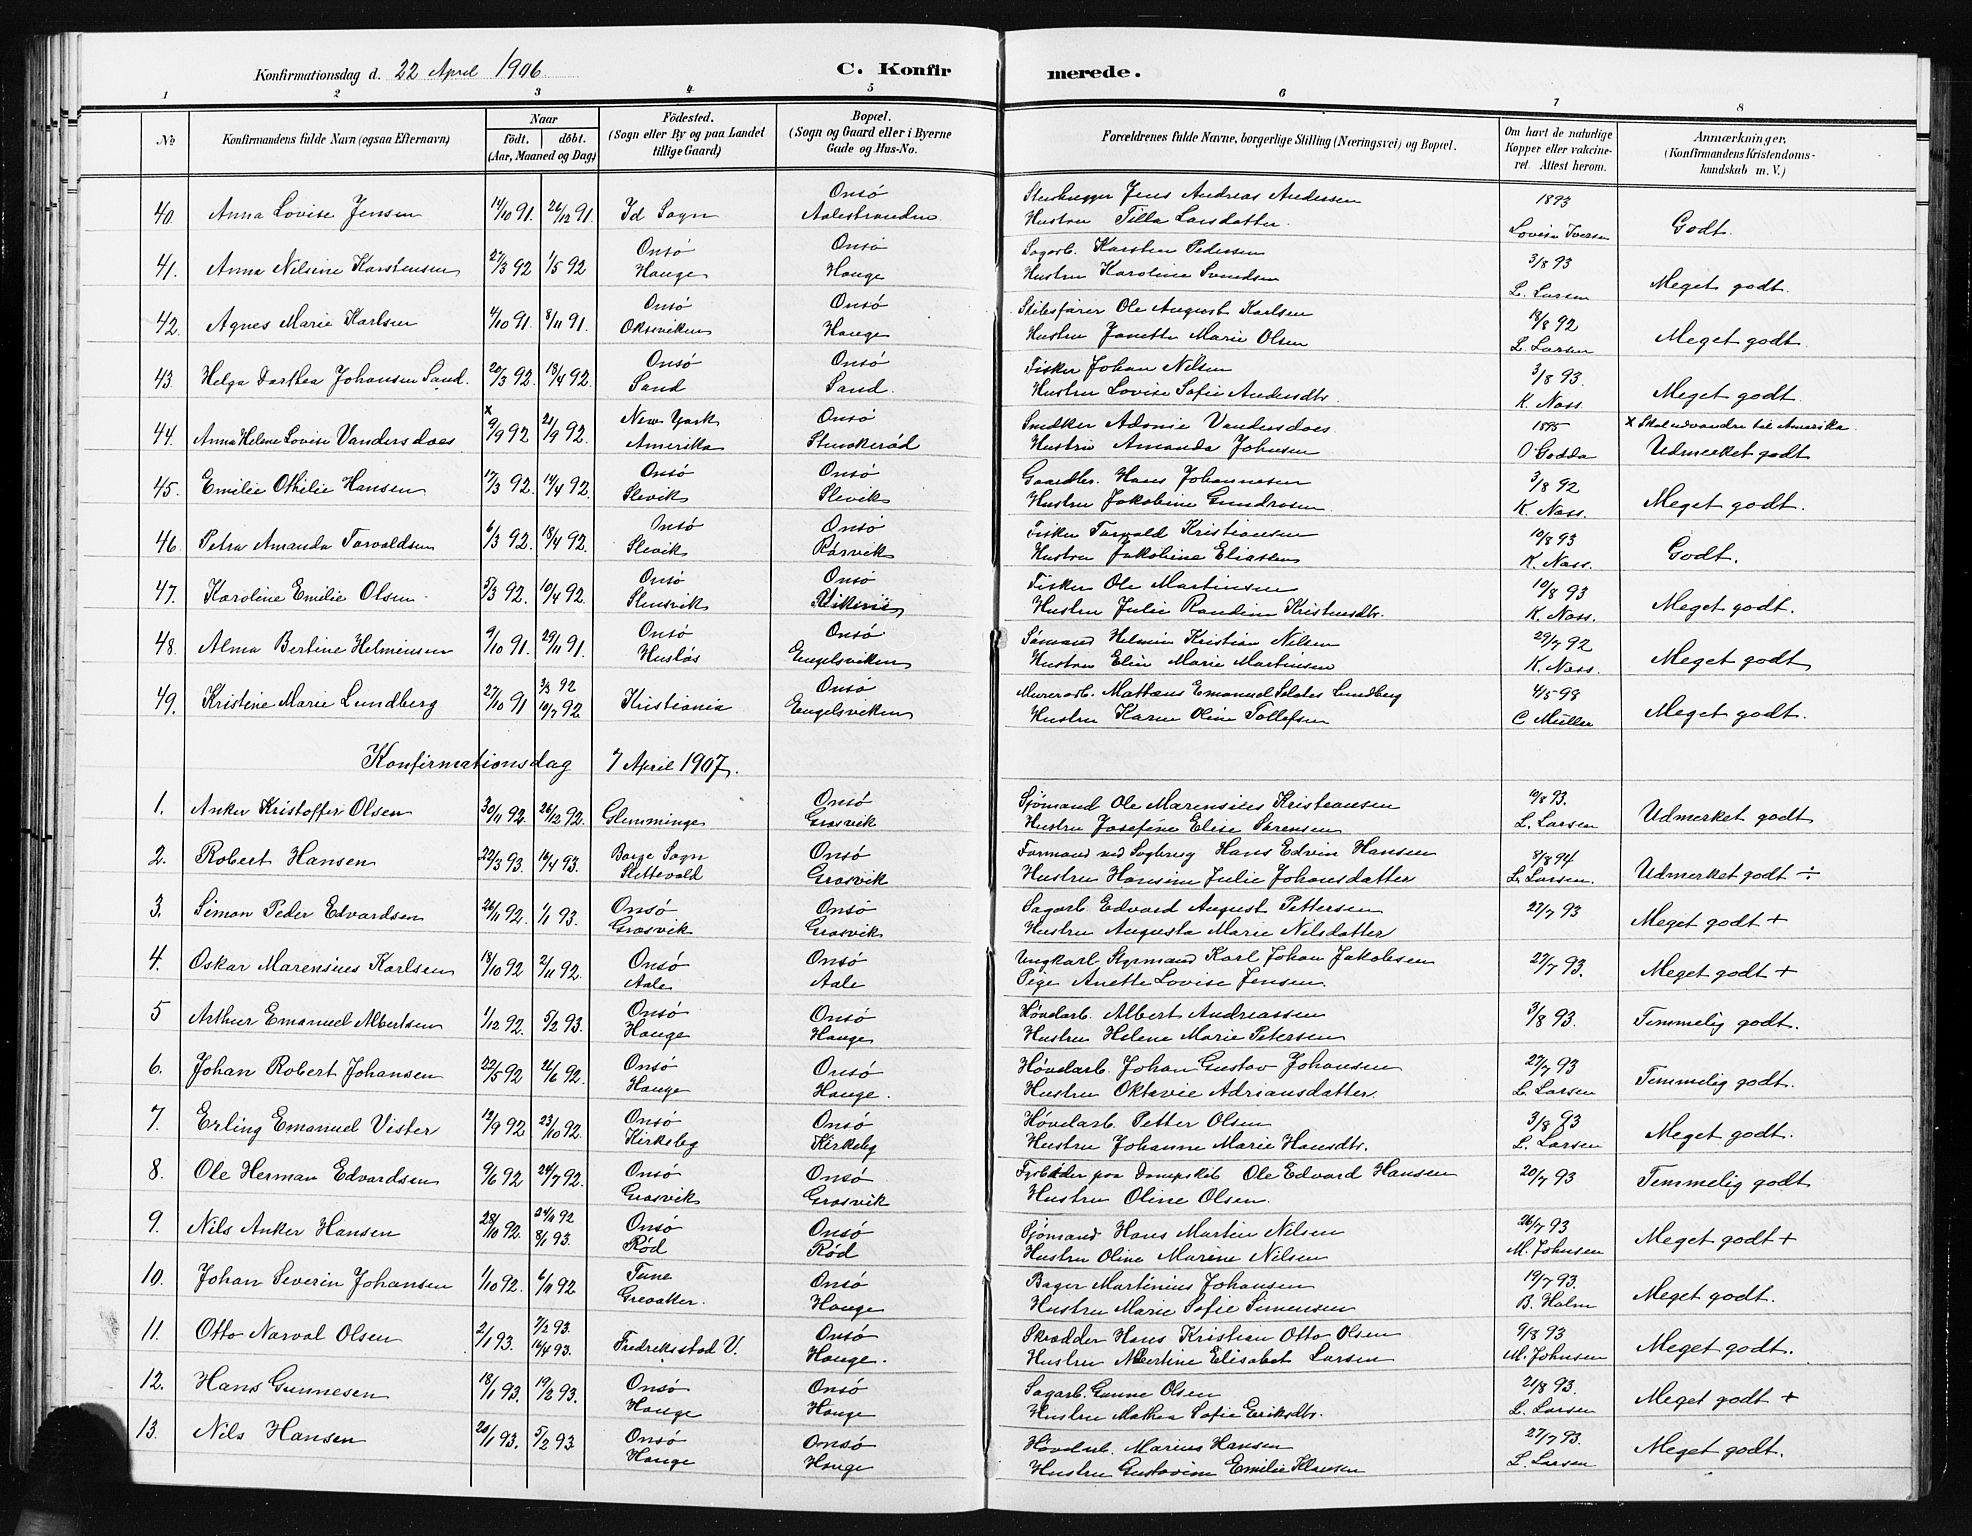 Konfirmationsdag d. 22 April 1906
C. Konfirmerede.
1 2 3 4 5 6 7 8
No
Konfirmandens fulde Navn (ogsaa Efternavn)
Naar
födt. döbt.
(Aar, Maaned og Dag)
Födested.
(Sogn eller By og paa Landet
tillige Gaard)
Bopæl.
(Sogn og Gaard eller i Byerne
Gade og Hus-No.
Forældrenes fulde Navne, borgerlige Stilling (Næringsvei) og Bopæl.
Om havt de naturlige
Kopper eller vakcine-
ret. Attest herom.
Anmærkninger,
(Konfirmandens Kristendoms-
kundskab m. V.)
40. Anna Lovise Jensen 14/10 91. 26/12 91. Id Sogn Onsö Aalestranden Stenhugger Jens Andreas Andersen 1893
Hustru Tilla Larsdatter. Lovise Iversen Godt.
41. Anna Nilsine Karstensen 27/3 92 1/5 92 Onsö Hauge Onsö Hauge Sagarb. Karsten Pedersen 3/8 93
Hustru Karoline Svendsen L. Larsen Meget godt.
42. Agnes Marie Karlsen 4/10 91. 8/11 91. Onsö Oksviken Onsö Hauge Ole August Karlsen 18/8 92
Hustru Janette Marie Olsen L. Larsen Meget godt.
43. Helga Dorthea Johansen Sand. 20/3 92 18/4 92. Onsö Sand Onsö Sand. Fisker Johan Nilsen 3/8 93.
Hustru Lovise Sofie Andersdtr. K. Nass. Meget godt.
44. Anna Helene Lovise Vandersdoes x 9/9 92 21/9 92. New York Amerika Onsö Snedker Adonie Vandersdoes 1895 x Skal udvandre til Amerika.
Hustru Amanda Johnsen O Godda Udmerket godt
45. Emilie Othilie Hansen 17/3 92. 14/4 92. Onsö Slevik Onsö Slevik Gaardbr. Hans Johannesen 3/8 92
Hustru Jakobine Gundrosen. K. Nass. Meget godt.
46. Petra Amanda Torvaldsen 6/3 92. 18/4 92. Onsö Slevik Onsö Rörvik Fisker Torvald Kristiansen 10/8 93
Hustru Jakobine Eliassen K. Nass. Godt.
47. Karoline Emilie Olsen 5/3 92. 10/4 92. Onsö Stensvik Onsö Vikene Fisker Ole Martinsen 10/8 93
Hustru Julie Randine Kristensdtr. K. Nass. Meget godt.
48. Alma Bertine Helminsen 9/10 91. 29/11 91. Onsö Huslös Onsö Engelsviken Sömand Helmin Kristian Nilsen 29/7 92
Hustru Elin Marie Martinsen K. Nass. Meget godt
49. Kristine Marie Lundberg 27/10 91 3/3 92 10/7 92. Kristiania Onsö Engelsviken Murerarb. Mattæus Emanuel Lundberg 4/5 98
Hustru Karen Oline Tollefsen C Müller Meget godt.
Konfirmationsdag 7 April 1907.
1. Anker Kristoffer Olsen 30/11 92. 26/12 92. Glemminge Onsö Gressvik Sjömand Ole Marensius Kristiansen 10/8 93.
Hustru Josefine Elise Sörensen L. Larsen Udmerket godt
2. Robert Hansen 22/3 93. 16/4 93. Borge Sogn Slettevold Onsö Gresvik Formand ved Sagbrug Hans Edvin Hansen 3/8 94
Hustru Hansine Julie Johansdatter L. Larsen. Udmerket godt ÷
3. Simon Peder Edvardsen 26/11 92. 1/1 93. Onsö Gresvik Onsö Gresvik Sagarb. Edvard August Pettersen 27/7 93
Hustru Augusta Marie Nilsdatter Meget godt +
4. Oskar Marensius Karlsen 18/10 92 2/11 92. Onsö Aale Onsö Aale Ungkarl Styrmand Karl Johan Jakobsen 27/7 93.
Pige Anette Lovise Jensen. Meget godt +
5 Arthur Emanuel Albertsen 1/12 92. 5/2 93. Onsö Hauge Onsö Hauge Hövlarb. Albert Andreassen 3/8 93.
Hustru Helene Marie Petersen Temmelig godt.
6. Johan Robert Johansen 22/5 92 26/6 92. Onsö Hauge Onsö Hauge. Hövlarb. Johan Gustav Johansen 27/7 93
Hustru Oktavie Adriansdatter. L. Larsen Temmelig godt.
7. Erling Emanuel Vister 12/9 92 23/10 92. Onsö Kirkeby Onsö Kirkeby Hövlarb. Petter Olsen 3/8 93
Hustru Johanne Marie Hansdtr. L. Larsen Meget godt.
8. Ole Herman Edvardsen 9/6 92 24/7 92. Onsö Gresvik Onsö Gresvik Fyrböder paa Dampskib Ole Edvard Hansen 20/7 93
Hustru Oline Olsen. Temmelig godt
9. Nils Anker Hansen 28/10 92. 24/11 92 8/1 93. Onsö Röd Onsö Röd Sjömand Hans Martin Nilsen 26/7 93
Hustru Oline Marine Nilsen M. Johnsen Meget godt +
10. Johan Severin Johansen 1/10 92. 6/11 92 Tune Greaaker. Onsö Hauge Bager Martinius Johansen 19/7 93.
Hustru Marie Sofie Simensen B. Holm Meget godt.
11. Otto Norval Olsen 2/1 93. 7/2 93. 16/4 93. Fredriksstad V. Onsö Hauge. Skrædder Hans Kristian Otto Olsen 9/8 93
Hustru Albertine Elisabet Larsen M. Johnsen Meget godt.
12. Hans Gunnesen 18/1 93. 19/2 93. Onsö Hauge Onsö Hauge Sagarb. Gunne Olsen 21/8 93.
Hustru Mathea Sofie Eriksdtr. L. Larsen Meget godt +
13. Nils Hansen 20/1 93. 5/2 93 Onsö Hauge Onsö Hauge Hövlarb. Marius Hansen 27/7 93.
Hustru Gustavine Emilie Klausen L. Larsen Meget godt.